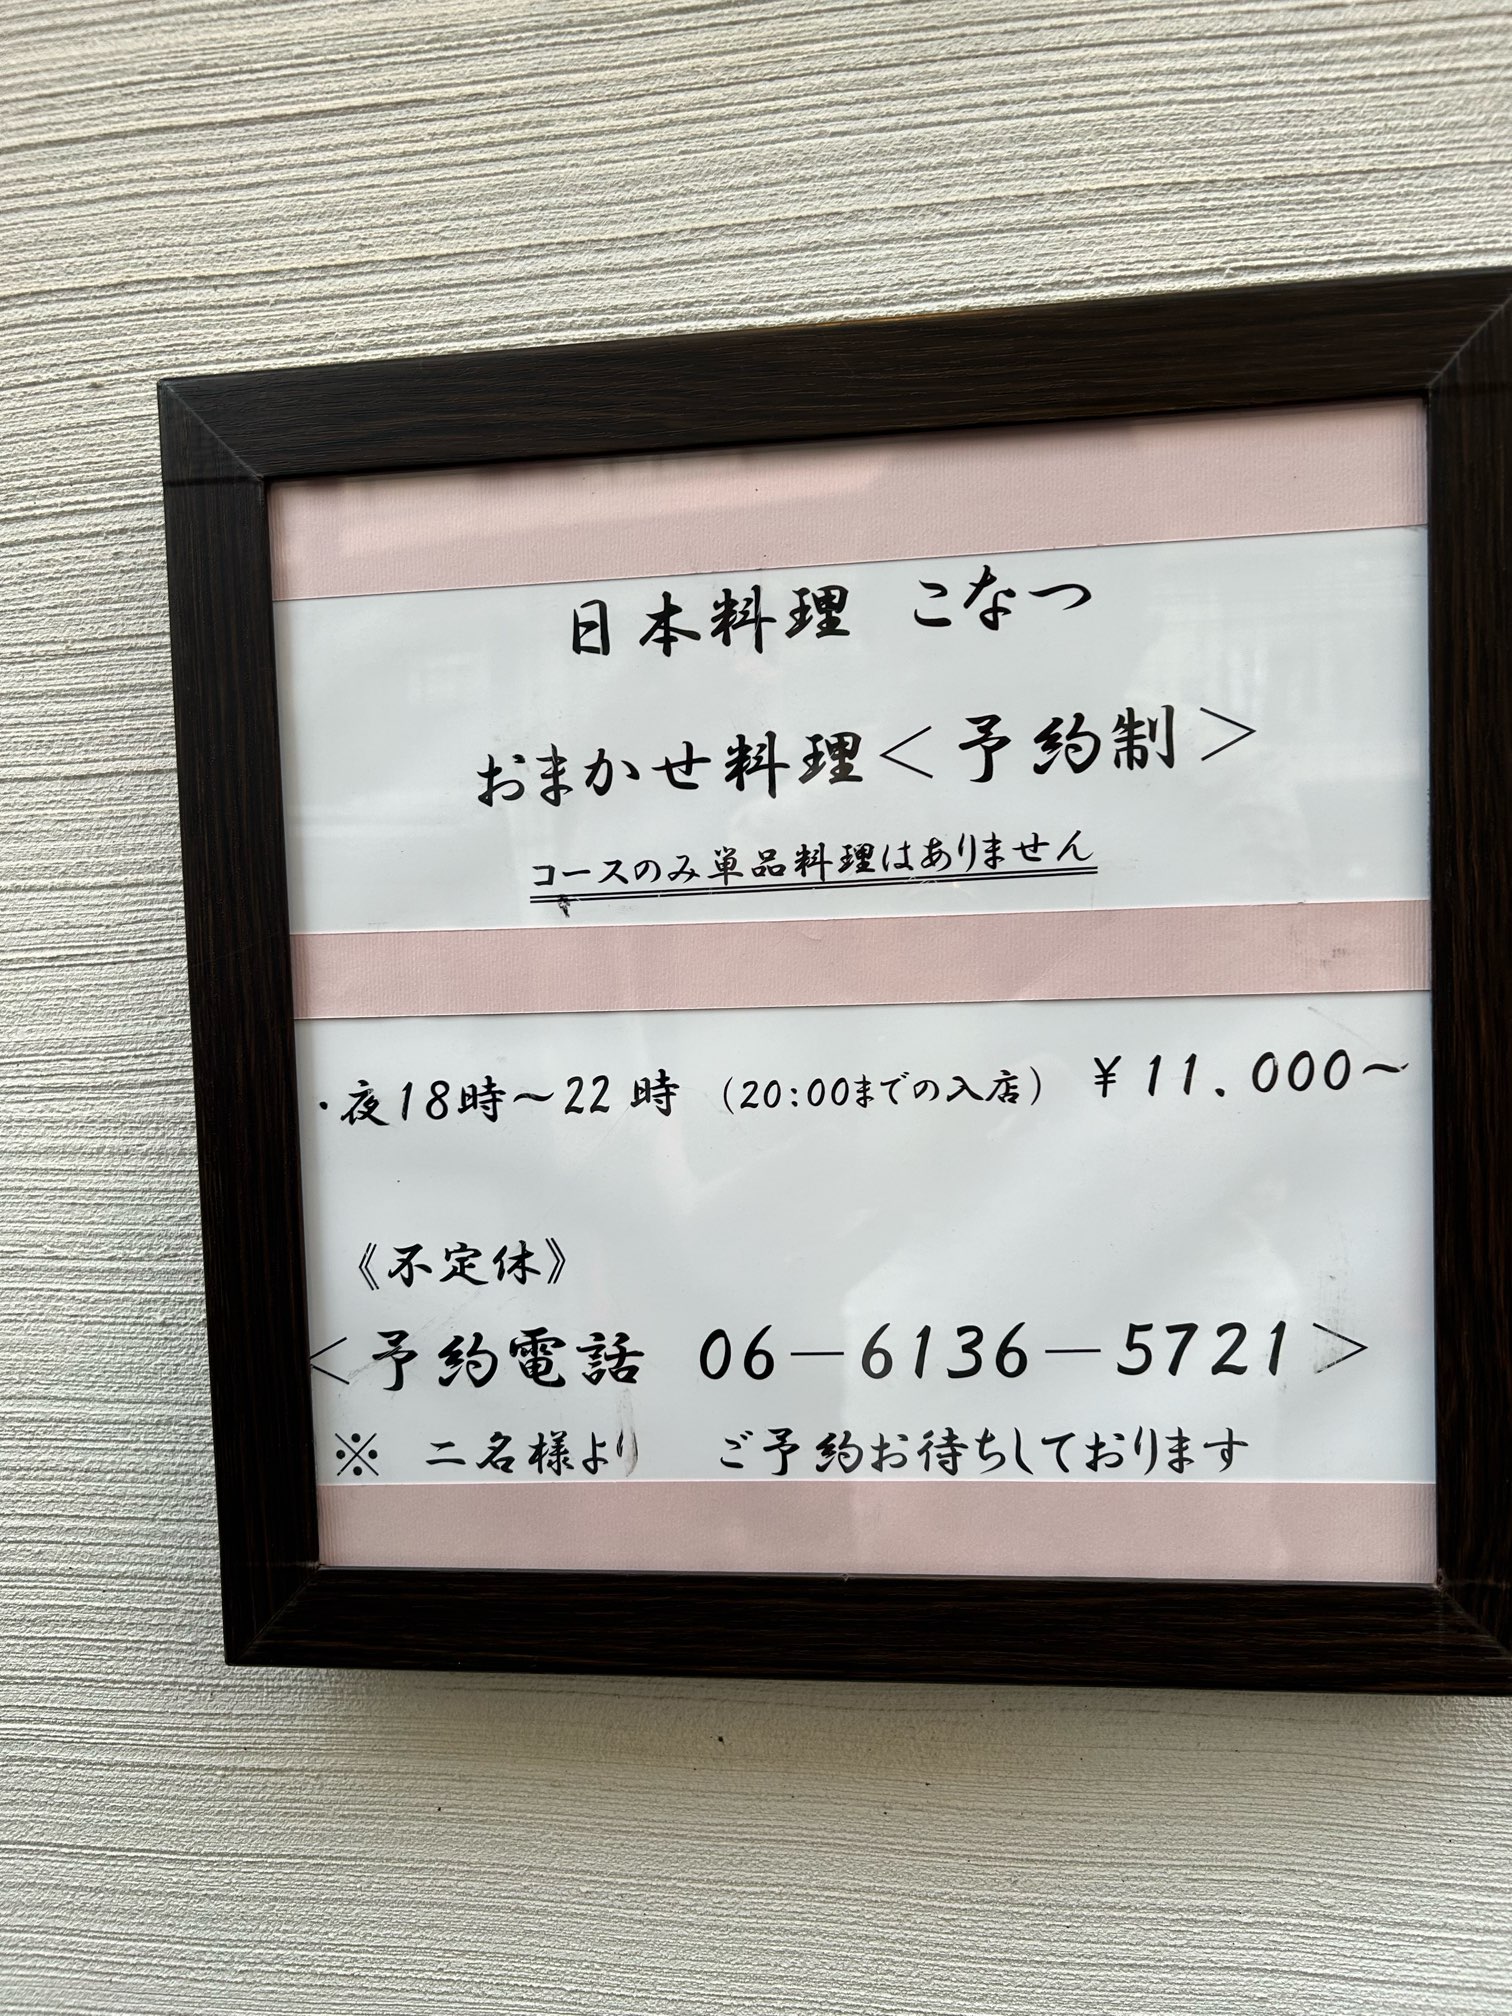 日本料理 こなつ
おまかせ料理＜予約制＞
コースのみ単品料理はありません
・夜18時～22時 （20:00までの入店） ￥11.000～
《不定休》
＜予約電話 06－6136－5721＞
※ 二名様より ご予約お待ちしております